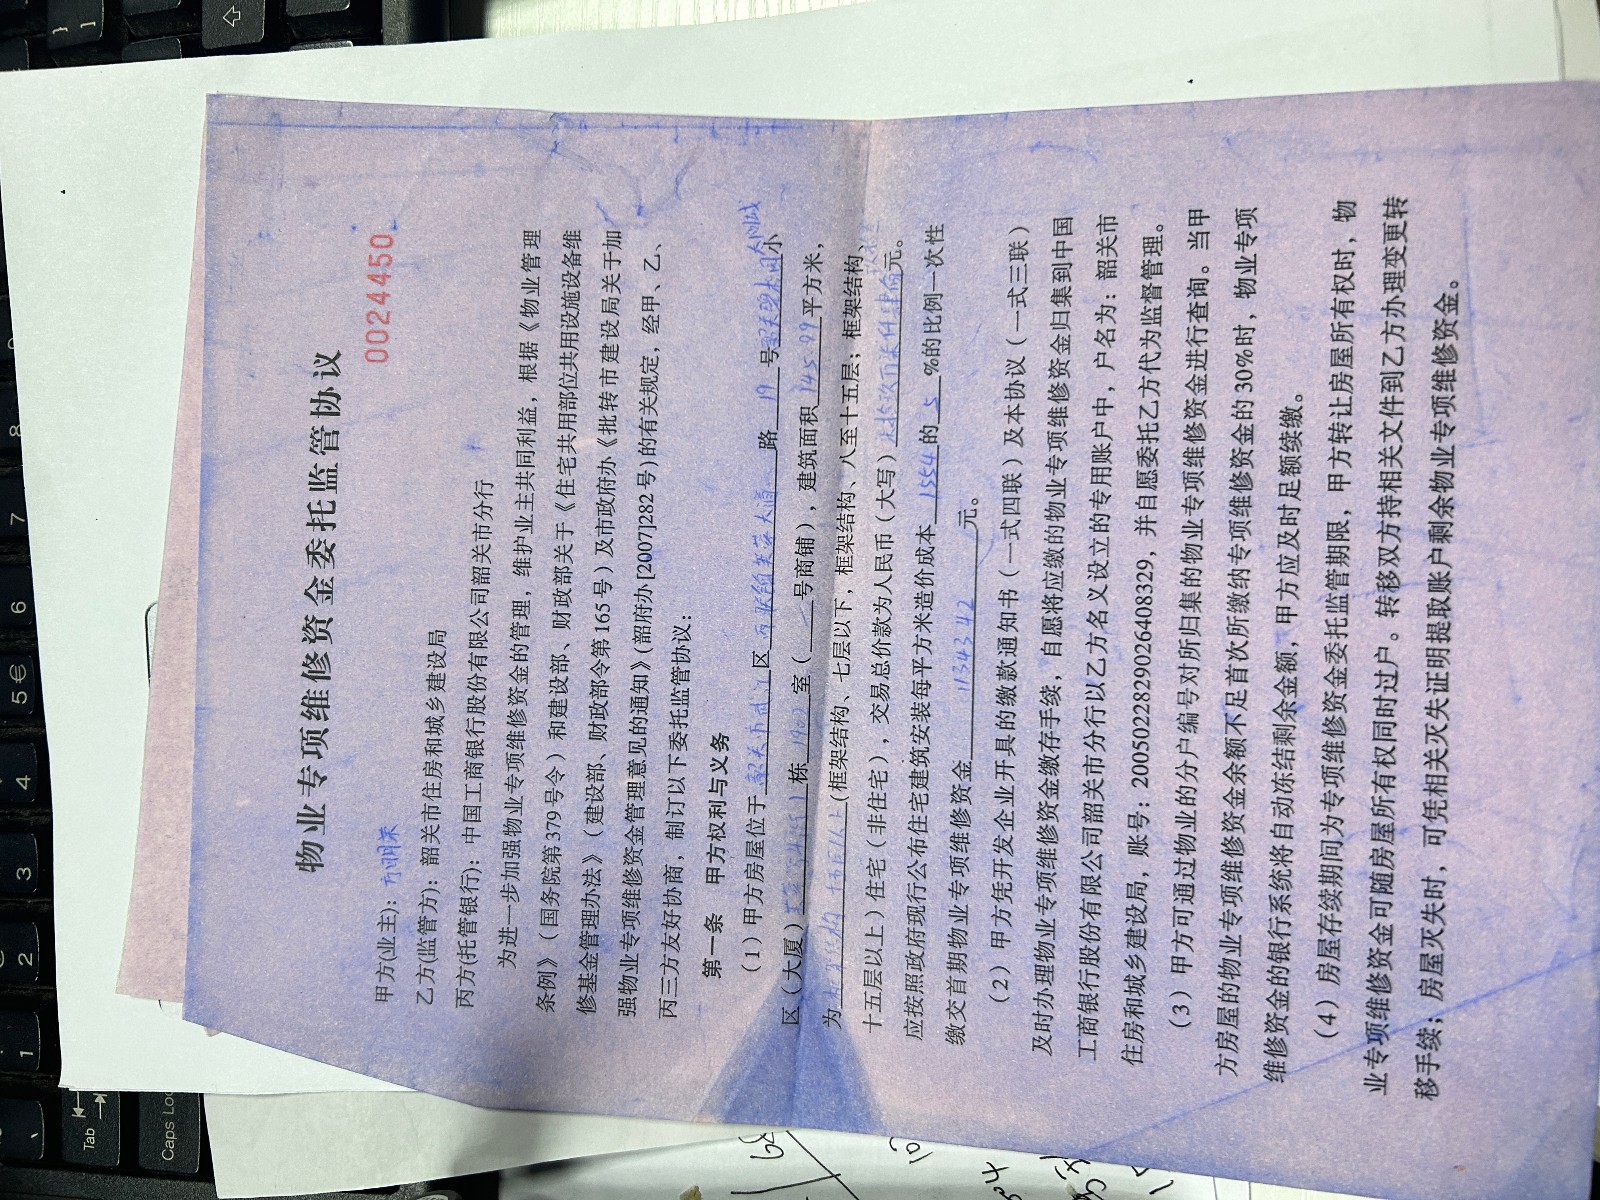 物业专项维修资金委托监管协议
0024450
甲方(业主):
乙方(监管方):韶关市住房和城乡建设局
丙方(托管银行):中国工商银行股份有限公司韶关市分行
为进一步加强物业专项维修资金的管理，维护业主共同利益，根据《物业管理
条例》（国务院第379号令）和建设部、财政部关于《住宅共用部位共用设施设备维
修基金管理办法》（建设部、财政部令第165号）及市政府办《批转市建设局关于加
强物业专项维修资金管理意见的通知》(韶府办[2007]282号)的有关规定，经甲、乙、
丙三方友好协商，制订以下委托监管协议：
第一条 甲方权利与义务
（1）甲方房屋位于韶关市武江区芙蓉大道路19号小
区（大厦）栋室（号商铺），建筑面积145.99平方米，
为框架结构十五层以上(框架结构、七层以下，框架结构、八至十五层；框架结构、
十五层以上）住宅（非住宅），交易总价款为人民币（大写）元。
应按照政府现行公布住宅建筑安装每平方米造价成本1554的5%的比例一次性
缴交首期物业专项维修资金11343.42元。
（2）甲方凭开发企业开具的缴款通知书（一式四联）及本协议（一式三联）
及时办理物业专项维修资金缴存手续，自愿将应缴的物业专项维修资金归集到中国
工商银行股份有限公司韶关市分行以乙方名义设立的专用账户中，户名为：韶关市
住房和城乡建设局，账号：2005022829026408329，并自愿委托乙方代为监督管理。
（3）甲方可通过物业的分户编号对所归集的物业专项维修资金进行查询。当甲
方房屋的物业专项维修资金余额不足首次所缴纳专项维修资金的30%时，物业专项
维修资金的银行系统将自动冻结剩余金额，甲方应及时足额续缴。
（4）房屋存续期间为专项维修资金委托监管期限，甲方转让房屋所有权时，物
业专项维修资金可随房屋所有权同时过户。转移双方持相关文件到乙方办理变更转
移手续；房屋灭失时，可凭相关灭失证明提取账户剩余物业专项维修资金。